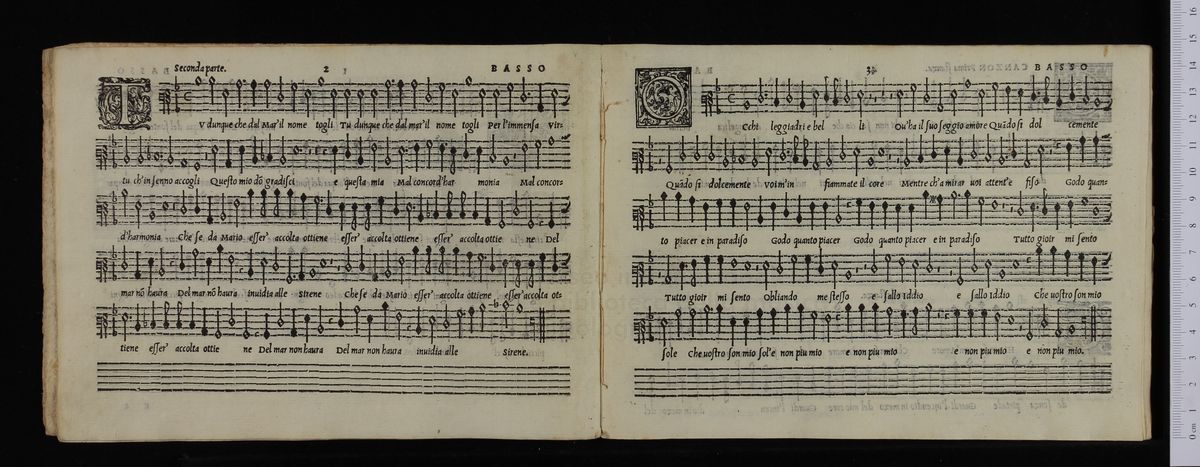 Seconda parte. 2 BASSO
TV dunque che dal Mar'il nome togli Tu dunque che dal mar'il nome togli Per l'immensa Vir-
tu ch'in senno accogli Questo mio dõ gradisci e questa mia Mal concord'har monia Mal concor-
d'harmonia Che se da Mario esser' accolta ottiene esser' accolta ottiene esser' accolta ottie ne Del
mar nõ haura Del mar nõ haura inuidia alle Sirene Che se da Mario esser' accolta ottiene esser' accolta ot-
tiene esser' accolta ottie ne Del mar non haura Del mar non haura inuidia alle Sirene.
34 BASSO
OCchi leggiadri e bel li Ou'ha il suo seggio amore Quãdo si dol cemente
Quãdo si dolcemente voi m'in fiammate il core Mentre ch'a mirar uoi attent'e fiso Godo quan-
to piacer e in paradiso Godo quanto piacer Godo quanto piacer e in paradiso Tutto gioir mi sento
Tutto gioir mi sento Obliando me stesso e sallo Iddio e sallo Iddio Che uostro son mio
sole Che uostro son mio sol'e non piu mio e non piu mio e non piu mio e non piu mio.
16
15
14
13
12
11
10
9
8
7
6
5
4
3
2
1
0 cm